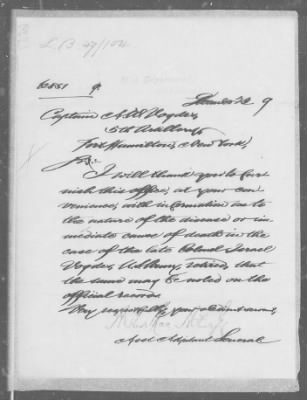 LB 27/104
6851 9.
9
Captain A. W. Vogdes,
5th Artillery,
Fort Hamilton, New York,
Sir:
I will thank you to fur-
nish this office, at your con-
venience, with information as to
the nature of the disease or im-
mediate cause of death in the
case of the late Colonel Israel
Vogdes, U.S. Army, retired, that
the same may be noted on the
official records.
Very respectfully, your obedient servant,
Asst Adjutant General